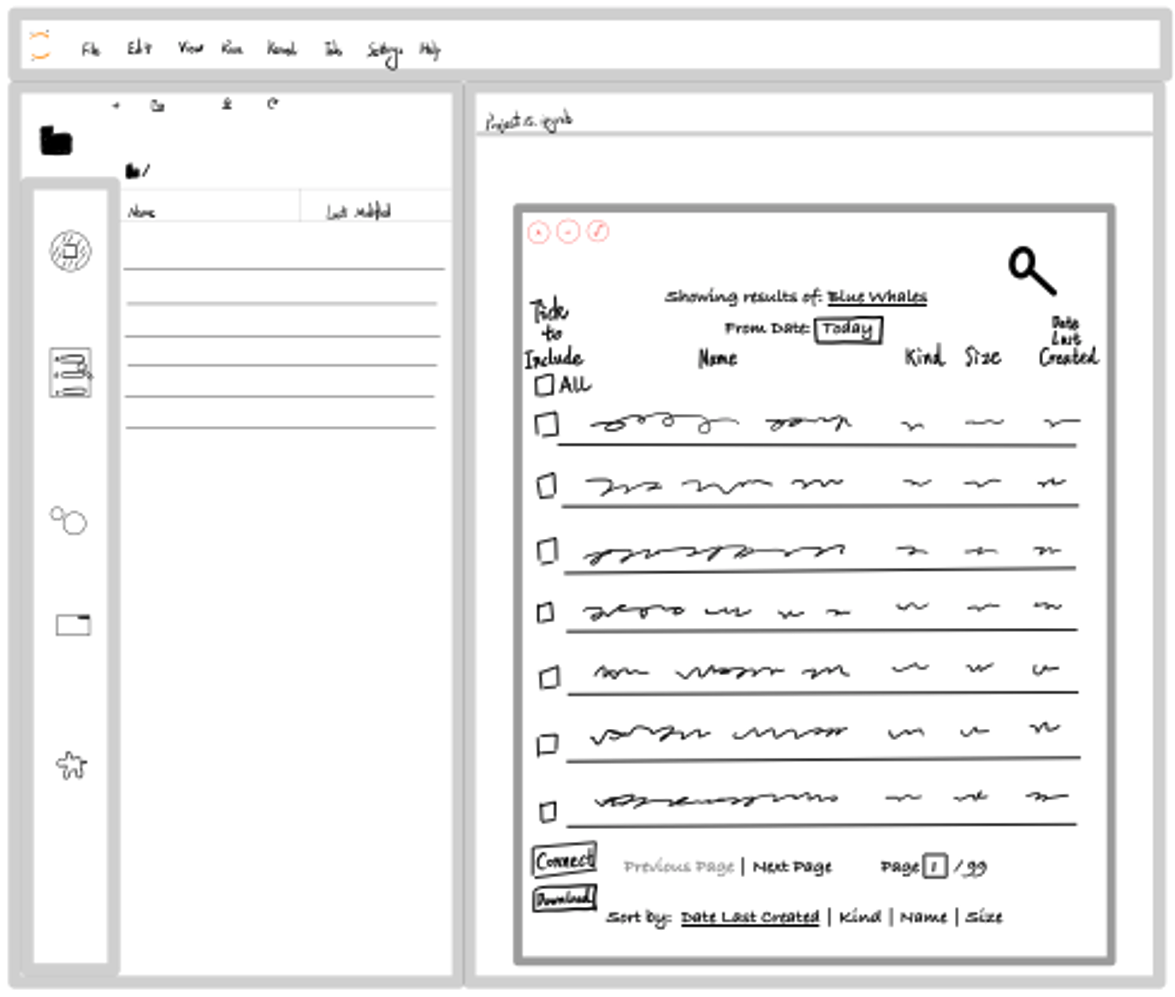 File Edit View Run Kernel Tabs Settings Help
Name Last Modified
Showing results of: Blue Whales
From Date: Today
Tick
to
Include
Name Kind Size Date
Last
Created
All
Connect
Previous Page | Next Page Page 1 / 99
Download
Sort by: Date Last Created | Kind | Name | Size